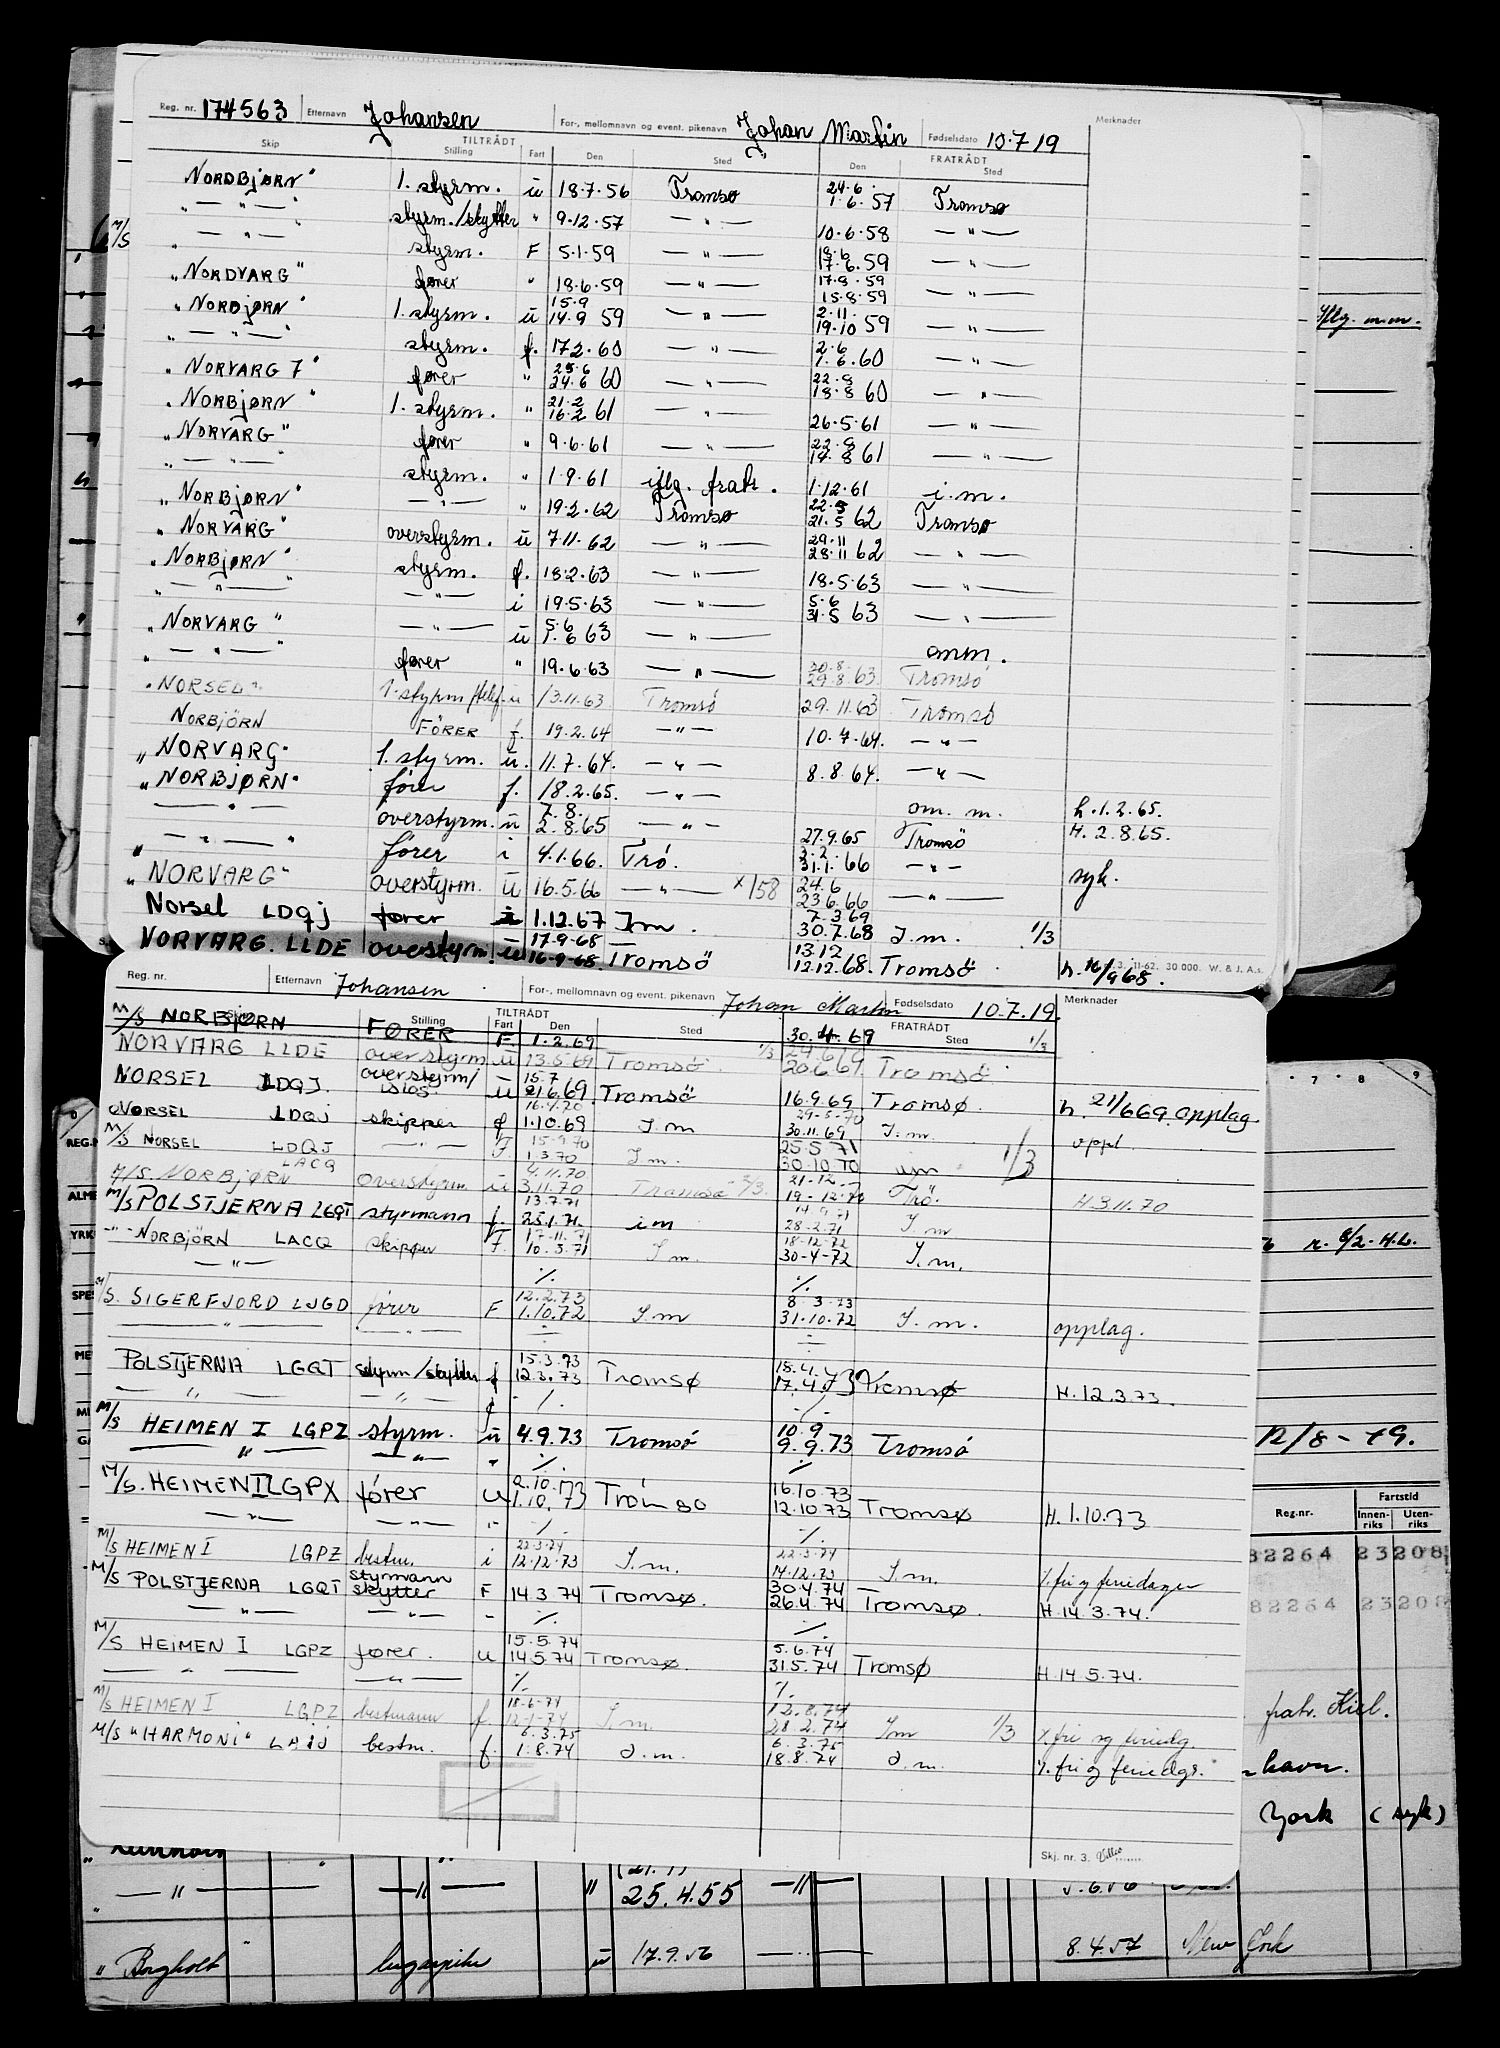 Reg. nr. 174563 Etternavn Johansen For-, mellomnavn og event. pikenavn Johan Martin Fødselsdato 10.7.19 Merknader
TILTRÅDT FRATRÅDT
Skip Stilling Fart Den Sted Den Sted
"NORDBJØRN" 1. styrm. u 18.7.56 Tromsø 24.6 1.6.57 Tromsø
M/S — " — styrm./skytter " 9.12.57 — " — 10.6.58 — " —
" — " — styrm. F 5.1.59 — " — 18.6 17.6.59 — " —
"NORDVARG" fører " 18.6.59 — " — 17.8.59 15.8.59 — " —
"NORBJØRN" 1. styrm. u 15.9 14.9 59 — " — 2.11. 19.10 59 — " —
" — " — styrm. f. 17.2.60 — " — 2.6 1.6.60 — " —
"NORVARG 7" fører " 25.6 24.6 60 — " — 22.8 18.8 60 — " —
"NORBJØRN" 1. styrm. " 21.2 16.2 61 — " — 26.5.61 — " —
"NORVARG" fører " 9.6.61 — " — 22.8 19.8 61 — " —
" — " — styrm. " 1.9.61 iflg. fratr. 1.12.61 i.m.
"NORBJØRN" — " — " 19.2.62 Tromsø 22.5 21.5 62 Tromsø
"NORVARG" overstyrm. u 7.11.62 — " — 29.11 28.11 62 — " —
"NORBJØRN" styrm. f. 18.2.63 — " — 18.5.63 — " —
" — " — " — " — i 19.5.63 — " — 5.6 31.5 63 — " —
"NORVARG" — " — u 5.6 1.6 63 — " — anm.
" — " — " fører " 19.6.63 — " — 30.8. 29.8.63 Tromsø
"NORSEL" 1. styrm/telef. u 13.11.63 Tromsö 29.11.63 Tromsö
NORBJÖRN FÖRER f. 19.2.64 — " — 10.7.64. — " —
"NORVARG" 1. styrm. u. 11.7.64. — " — 8.8.64. — " —
"NORBJØRN" fører f. 18.2.65. — " — om. m. h. 1.2.65.
— " — overstyrm. u 7.8. 2.8.65 — " — 27.9.65 Tromsö H. 2.8.65.
" — " — " fører i 4.1.66. Trö. 3.2. 31.1.66 — " — syk.
"NORVARG" overstyrm. u 16.5.66 — " — x/58 24.6 23.6.66 — " —
Norsel LDQJ fører i 1.12.67 I m. 7.3.69 30.7.68 I.m. 1/3
NORVARG. LLDE overstyrm. u 17.9.68 16.9.68. Tromsö 13.12 12.12.68. Tromsö h. 16/9 68.
11-62. 30 000. W. & J.A.s.
Reg. nr. Etternavn Johansen For-, mellomnavn og event. pikenavn Johan Martin Fødselsdato 10.7.19. Merknader
TILTRÅDT FRATRÅDT
Stilling Fart Den Sted Sted
M/S NORBJØRN FØRER F. 1.2.69 30.4.69 1/3
NORVARG LLDE overstyrm u 13.5 69 Tromsö 1/3 29.6 69 20.6 69 Tromsö
NORSEL LDQJ. overstyrm/ u 15.7 21.6.69 Tromsö 16.9.69 Tromsø. h. 21/6 69. opplag
NORSEL LDQJ skipper f 16.4.70 1.10.69 I m 29.5.70 30.11.69 I.m. oppl
M/S NORSEL LDQJ — " — F. 15.9.70 1.3.70 I m. 25.5 71 30.10.70 im 1/3
M/S NORBJØRN LACQ overstyrm u 4.11.70 3.11.70 Tromsö 21.12. 19-12.70 Trö. H. 3.11.70
M/S POLSTJERNA LGQT styrmann f. 13.7.71 25.1.71. i m 14.9.71 28.2.71 I m
— " — NORBJÖRN LACQ skipper F. 17.11.71 10.3.71 I m. 18-12-72 30-4-72 I.m.
— " — % %
M/S. SIGERFJORD LJGD fører F 12.2.73 1.10.72 I m 8.3.73 31.10.72 I.m. opplag.
— " — — " —
POLSTJERNA LGQT styrm/skytter f 15.3.73 12.3.73 Tromsø 18.4. 17.4.73 Tromsø H. 12.3.73.
— " — — " — f % %
M/S HEIMEN I LGPZ styrm. u 4.9.73 Tromsö 10.9 9.9.73 Tromsö
— " — — " — " % %
M/S. HEIMEN II LGPX fører u 2.10.73 1.10.73 Tromsø 16.10.73 12.10.73 Tromsø H. 1.10.73
— " — — " — " % %
M/S HEIMEN I LGPZ bestm. i 22.3.74 12.12.73 I.m. 22.3.74 14.12.73 I.m. % fri og feriedager
M/S POLSTJERNA LGQT styrmann skytter F 14.3.74 Tromsø. 30.4.74 26.4.74 Tromsø. H. 14.3.74.
— " — — " — - % %
M/S HEIMEN I LGPZ fører. u 15.5.74 14.5.74 Tromsø. 5.6.74 31.5.74 Tromsø H. 14.5.74.
— " — — " — % %
M/S HEIMEN I LGPZ bestmann f 18-6-74 12-1-74 I.m. 12.8.74 28.2.74 I m 1/3 % fri og feriedg.
M/S "HARMONI" bestm. f. 6.3.75 1.8.74 I.m. 6.3.75 18.8.74 I.m. % fri og feriedgr.
Skj. nr. 3.
— " — — " — " 25.4.55 — " —
" Borgholt " u 17.9.56 — " — 8.4.57 New York
12/8-79.
Reg.nr. Fartstid
Innenriks Utenriks
82264 23208
82264 23208
fratr. Kiel.
havn.
York (syk)